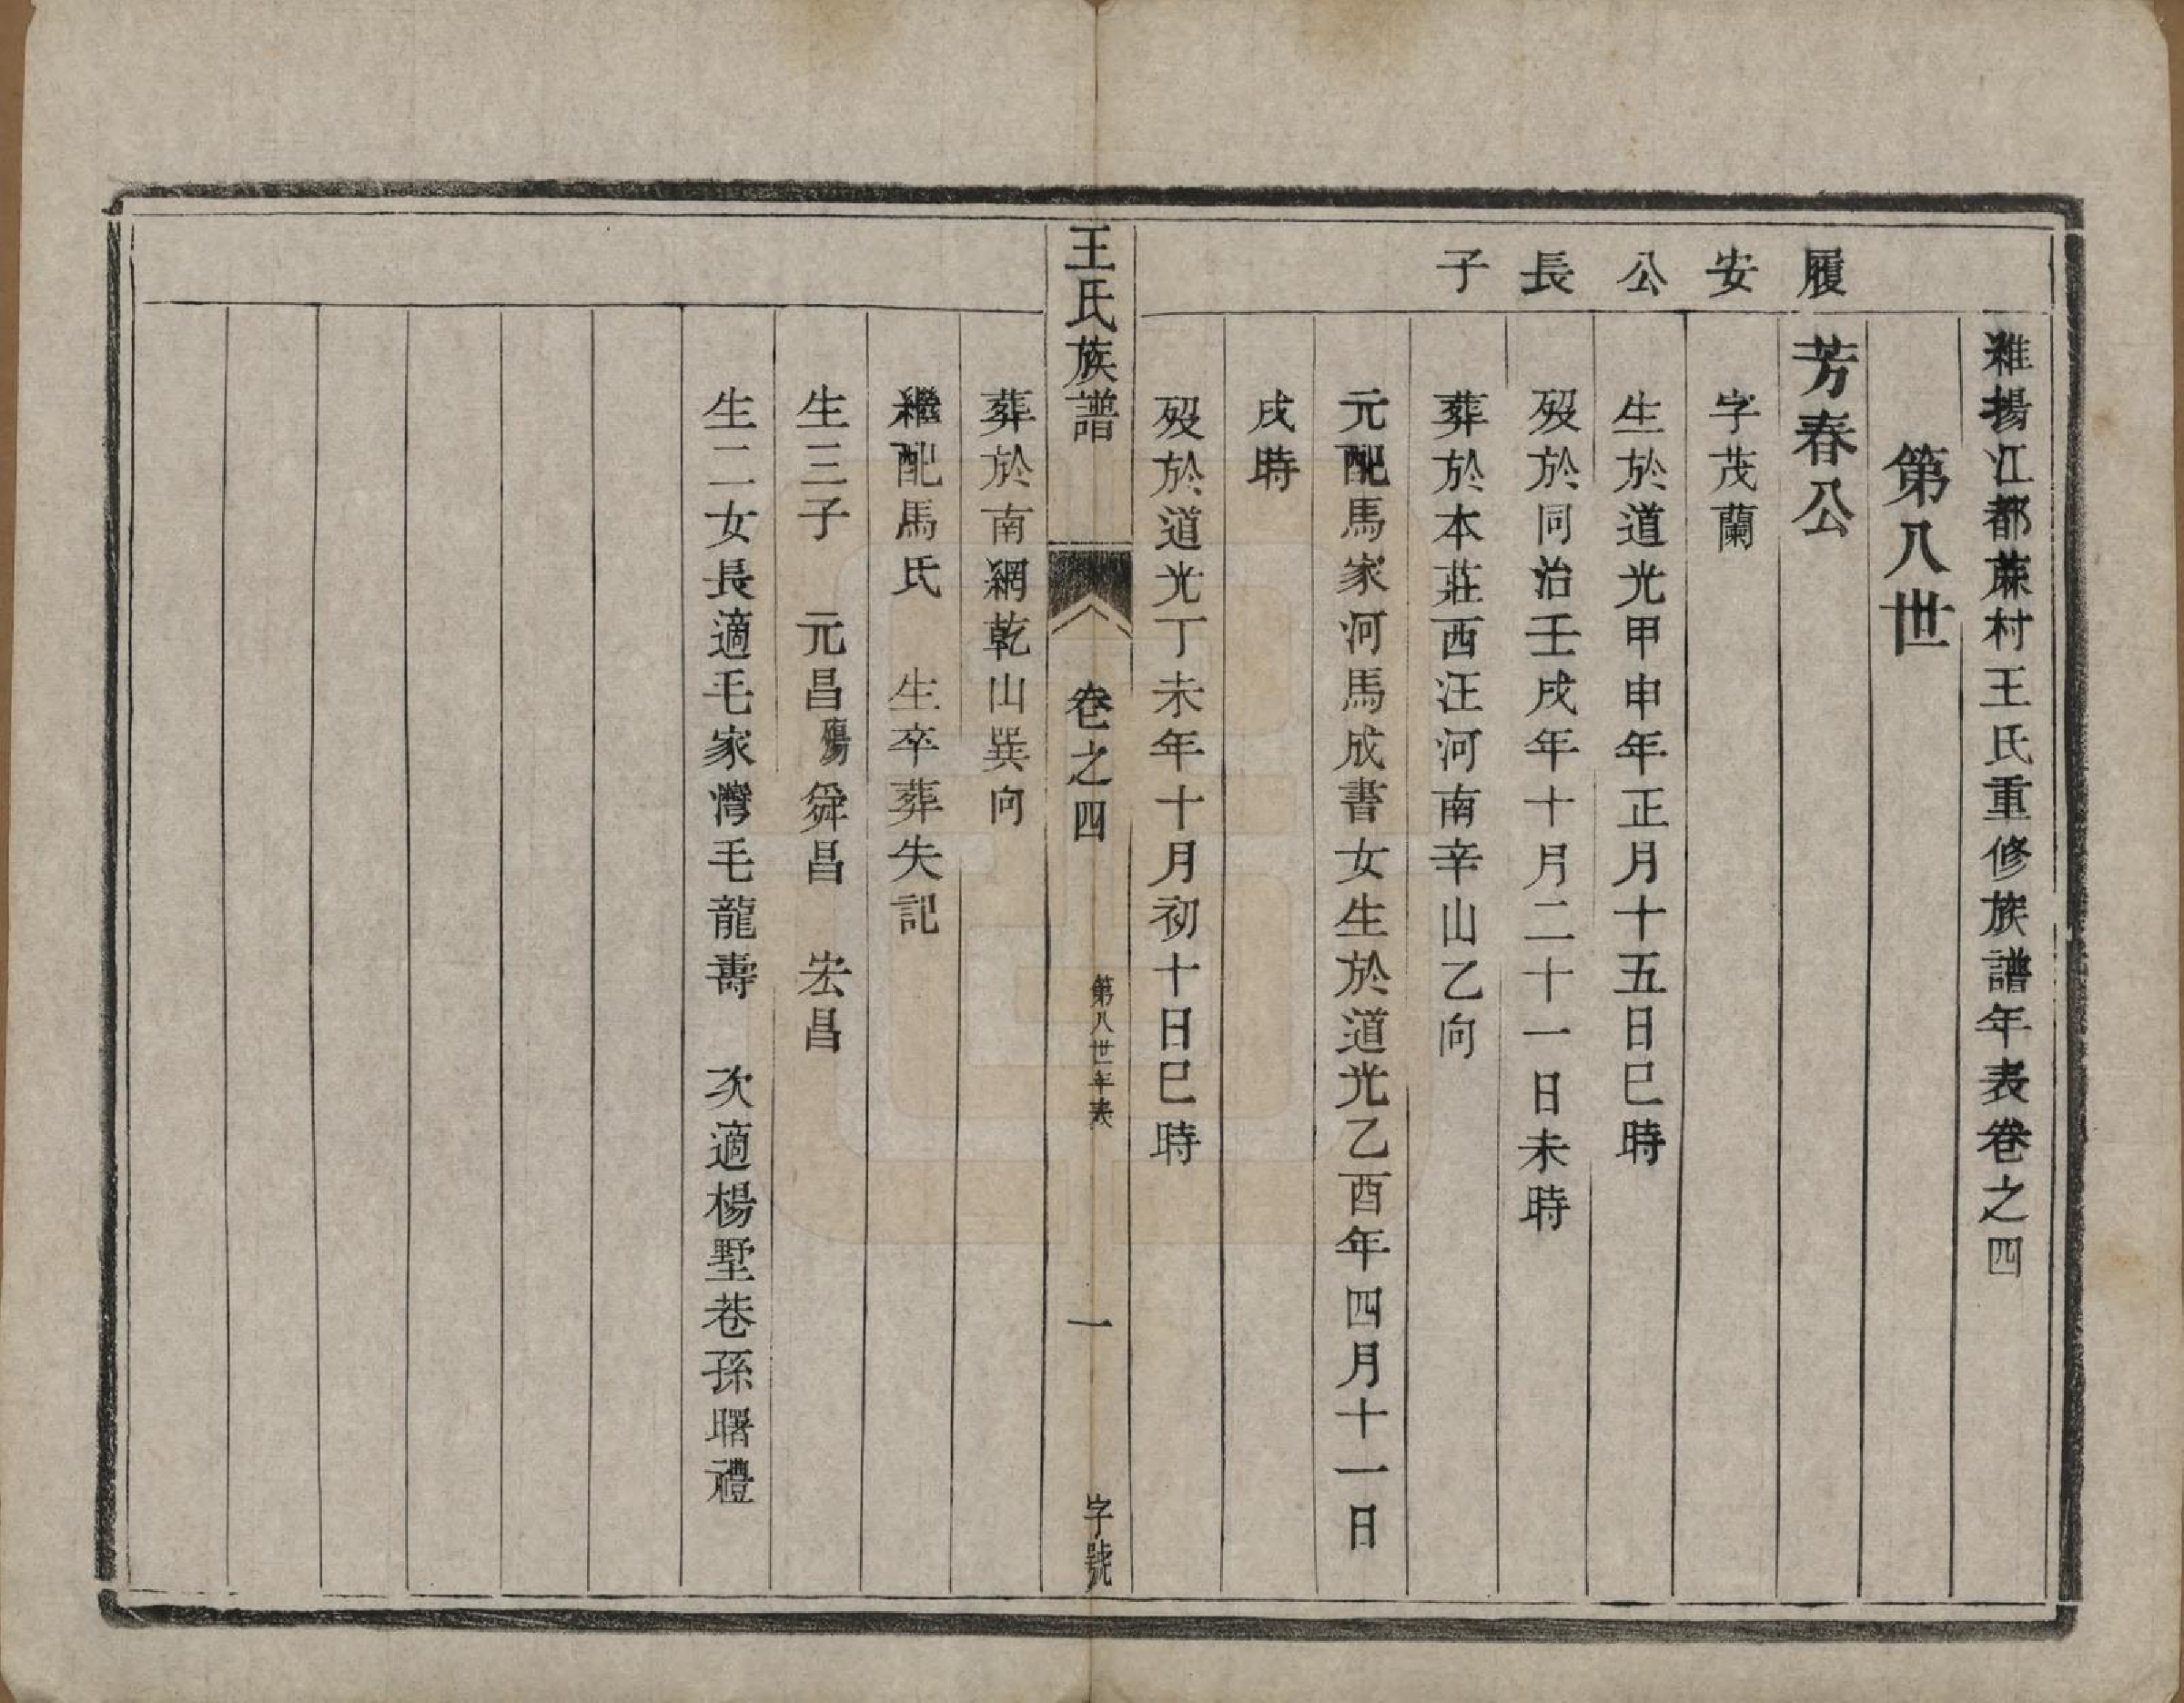 維揚江都蔴村王氏重修族譜年表卷之四
第八世
履安公長子
芳春公
字茂蘭
生於道光甲申年正月十五日巳時
歿於同治壬戌年十月二十一日未時
葬於本莊西汪河南辛山乙向
元配馬家河馬成書女生於道光乙酉年四月十一日
戌時
歿於道光丁未年十月初十日巳時
王氏族譜 卷之四 第八世年表 一 字號
葬於南網乾山巽向
繼配馬氏 生卒葬失記
生三子 元昌殤 舜昌 宏昌
生二女長適毛家灣毛龍壽 次適楊墅巷孫曙禮